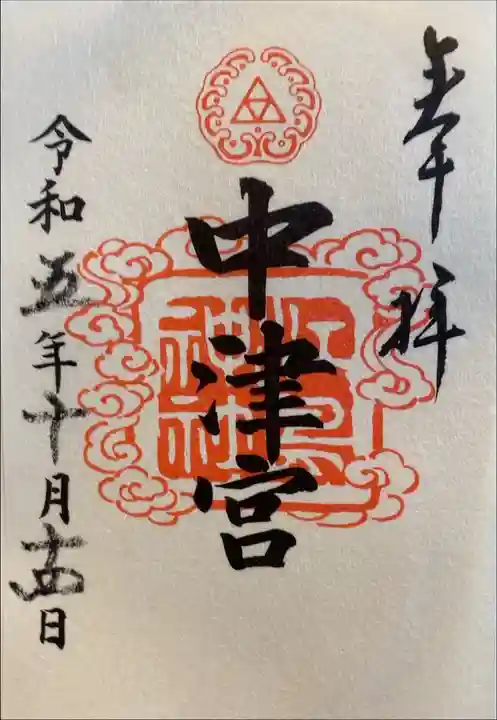 奉拝
中津宮
令和五年十月十四日